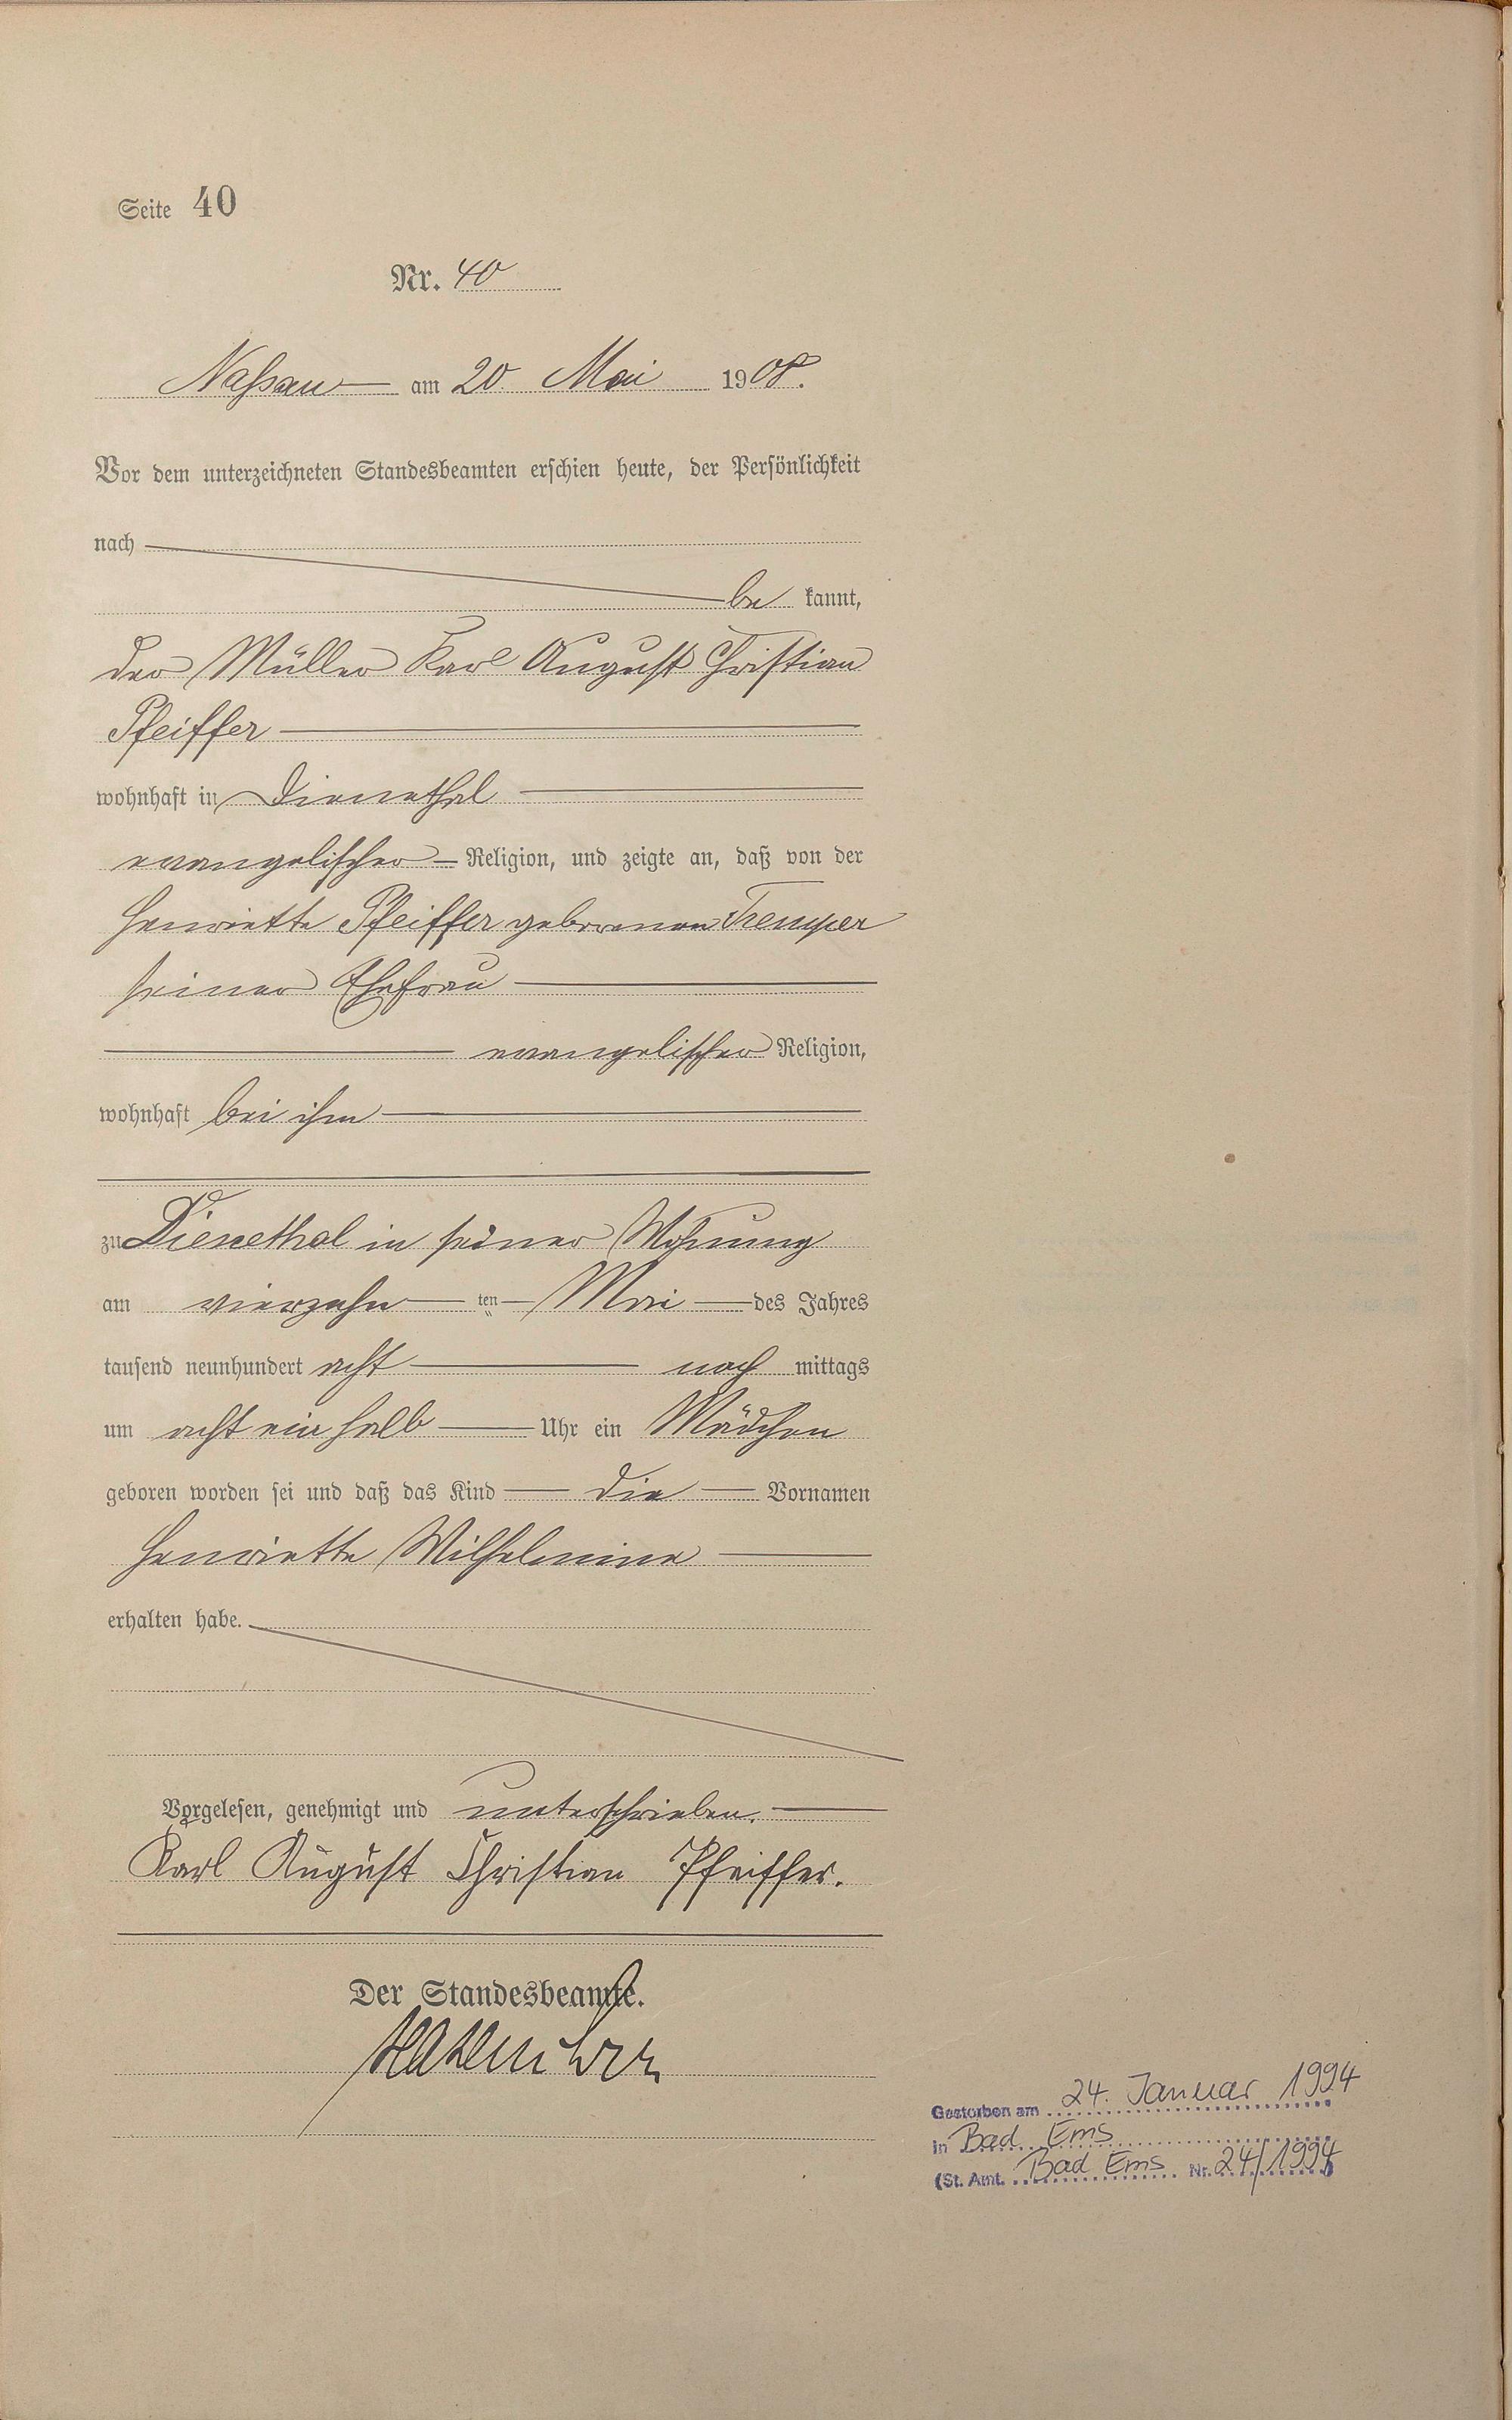 Seite 40
Nr. 40
Nassau am 20. Mai 1908.
Vor dem unterzeichneten Standesbeamten erschien heute, der Persönlichkeit
nach
be kannt,
der Müller Karl August Christian
Pfeiffer
wohnhaft in Dienethal
evangelischer Religion, und zeigte an, daß von der
Henriette Pfeiffer geborenen Tremper
seiner Ehefrau
evangelischer Religion,
wohnhaft bei ihm
zu Dienethal in seiner Wohnung
am vierzehn ten Mai des Jahres
tausend neunhundert acht nach mittags
um acht ein halb Uhr ein Mädchen
geboren worden sei und daß das Kind die Vornamen
Henriette Wilhelmine
erhalten habe.
Vorgelesen, genehmigt und unterschrieben.
Karl August Christian Pfeiffer.
Der Standesbeamte.
Gestorben am 24. Januar 1994
in Bad Ems
(St. Amt. Bad Ems Nr. 24/1994)